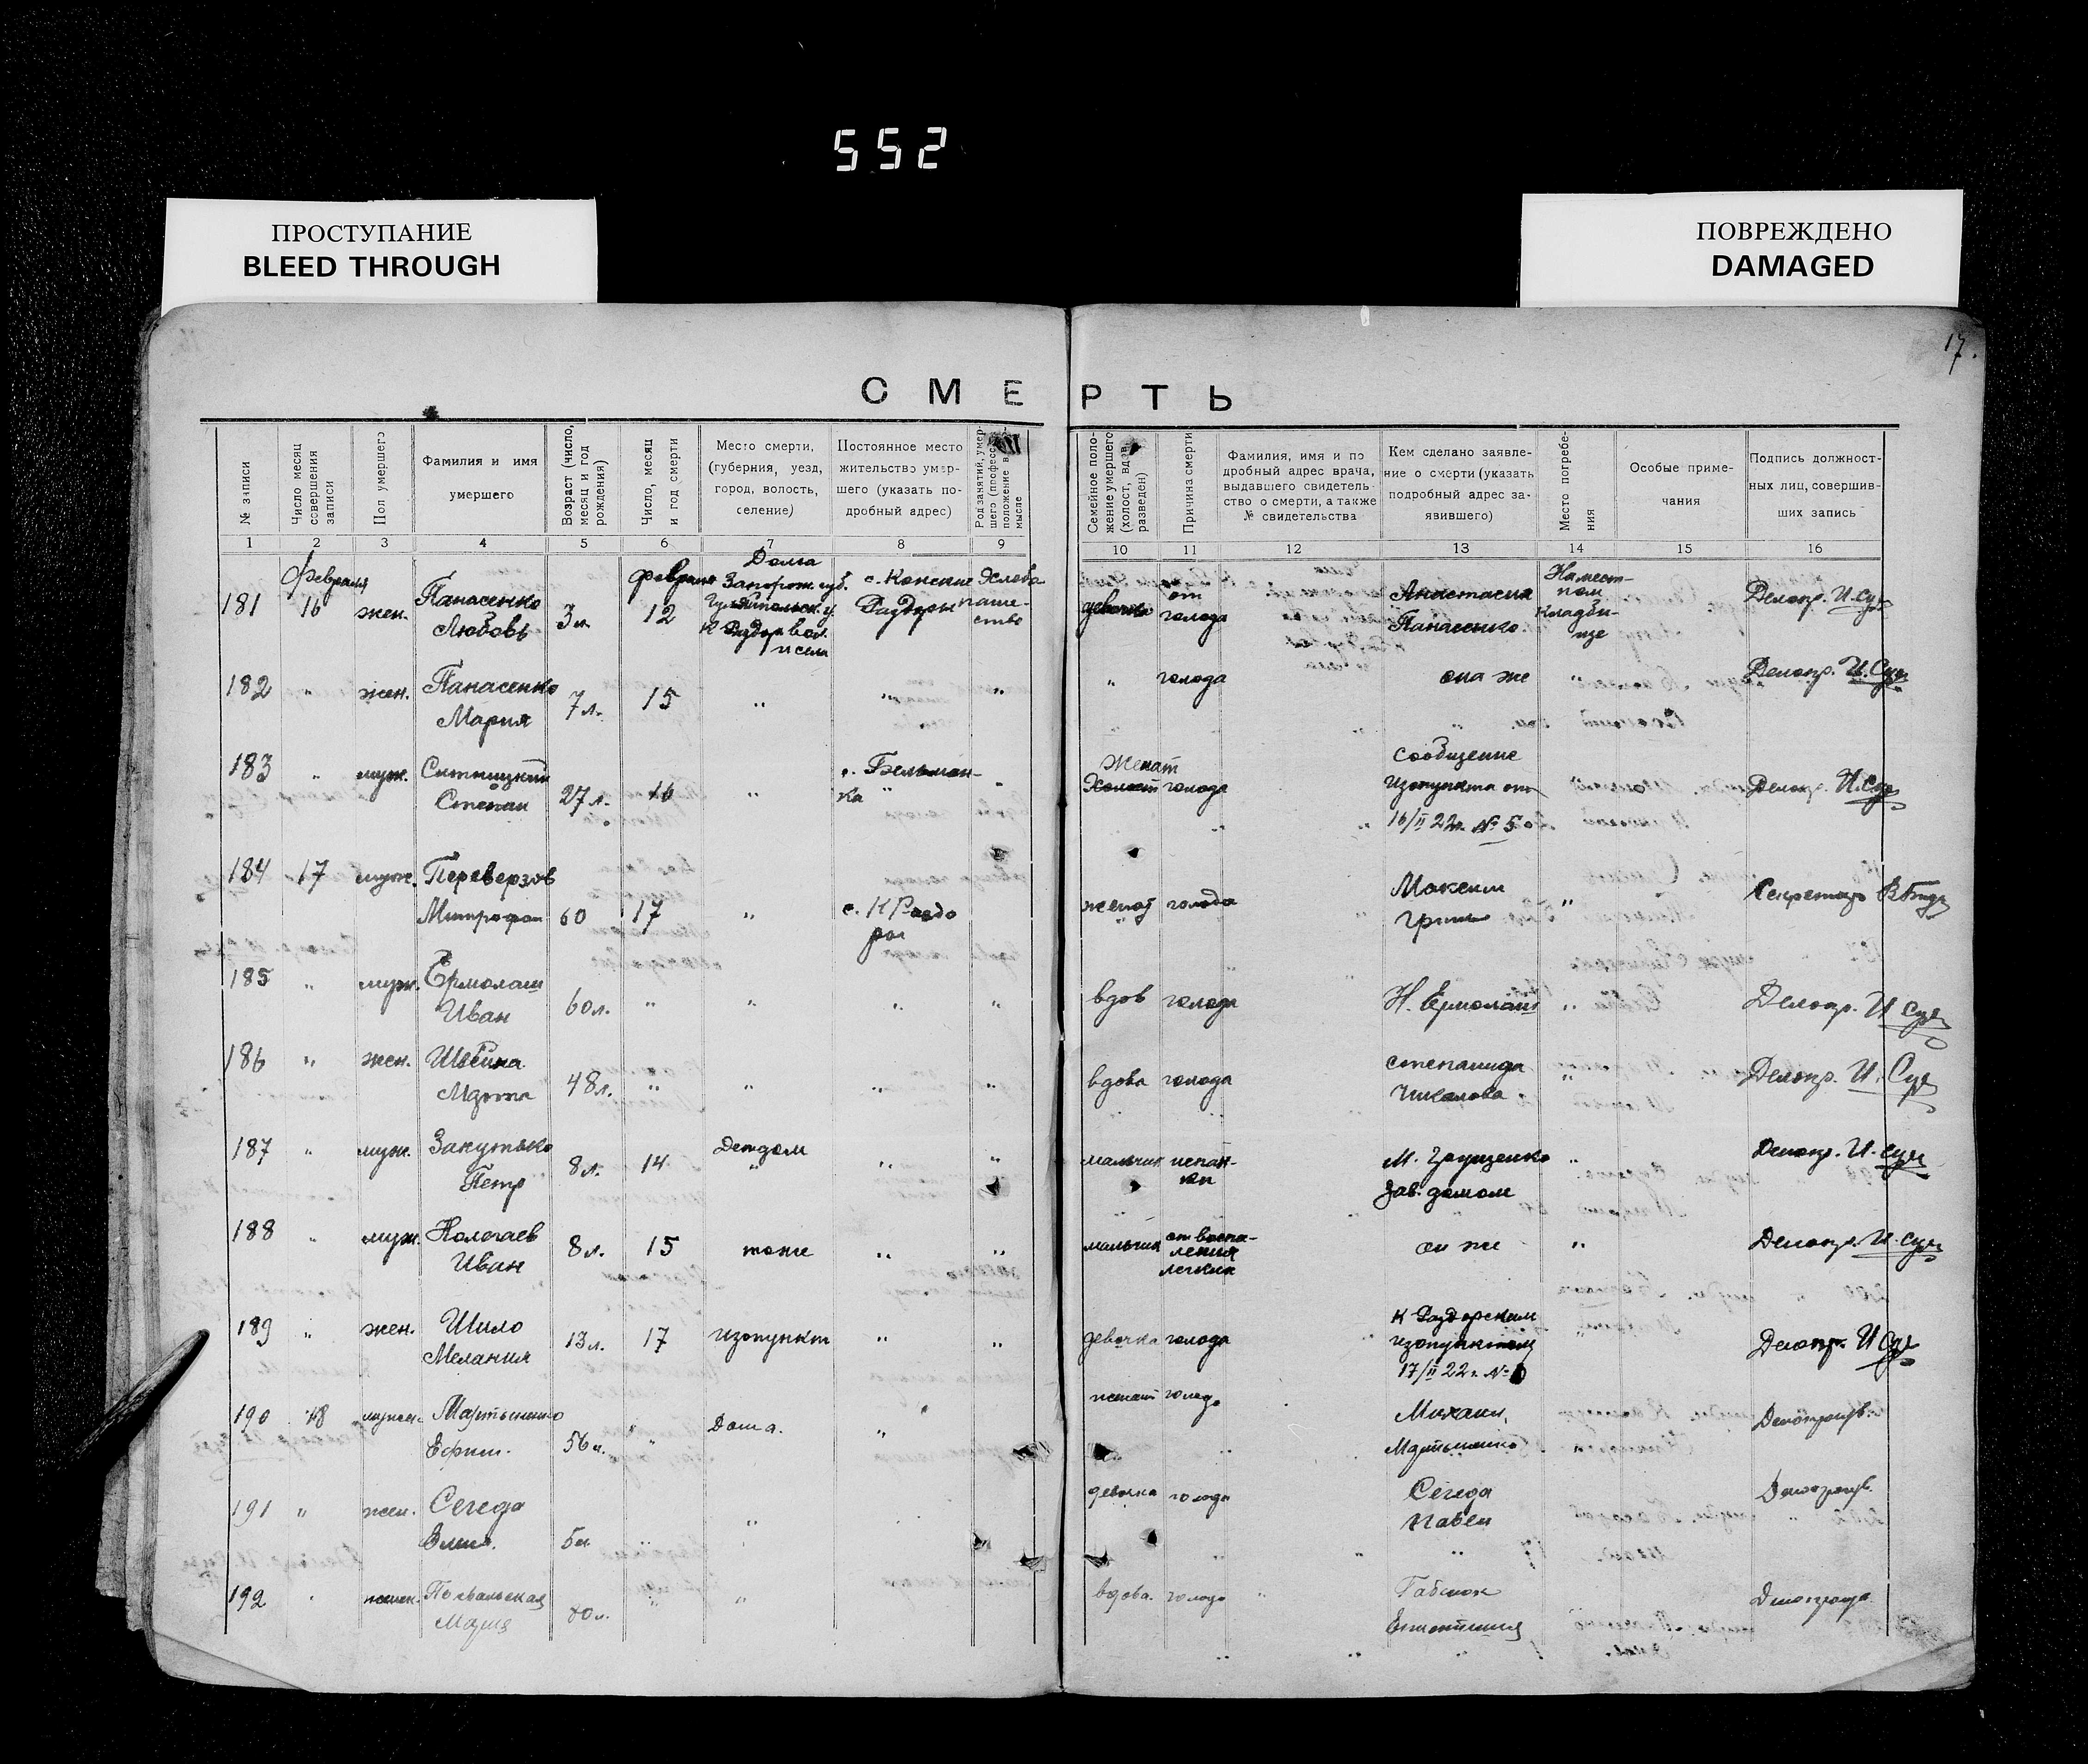 552
ПРОСТУПАНИЕ
BLEED THROUGH
ПОВРЕЖДЕНО
DAMAGED
17.
СМЕРТЬ
№ записи
Число месяц совершения записи
Пол умершего
Фамилия и имя умершего
Возраст (число, месяц и год рождения)
Число, месяц и год смерти
Место смерти, (губерния, уезд, город, волость, селение)
Постоянное место жительство умершего (указать подробный адрес)
Семейное положение умершего (холост, вдов, разведен)
Причина смерти
Фамилия, имя и подробный адрес врача, выдавшего свидетельство о смерти, а также № свидетельства
Кем сделано заявление о смерти (указать подробный адрес заявившего)
Место погребения
Особые примечания
Подпись должностных лиц, совершивших запись
1 2 3 4 5 6 7 8 9 10 11 12 13 14 15 16
181 Февраля 16 жен. Панасенко Любовь 3 л. февраля 12 Дома Запорож губ. с. Конские Раздоры Хлебопашество девочка от голода Анастасия Панасенко На местном кладбище Делопр. И. Суд
182 " жен. Панасенко Мария 7 л. 15 " " " " голода она же " Делопр. И. Суд
183 " муж. Ситницкий Степан 27 л. 16 " с. Бельманка " Женат Холост голода сообщение изопункта от 16/II 22 г. № 5 Делопр. И. Суд
184 17 муж. Переверзов Митрофан 60 17 " с. К Раздоры женат голода Максим " Секретарь
185 " муж. Ермолаш Иван 60 л. " " " " вдов голода Н. Ермолаш " Делопр. И Суд
186 " жен. Марта 48 л. " " " " вдова голода степанида Чикалова " Делопр. И. Суд
187 " муж. Закутько Петр 8 л. 14 Детдом " " " мальчик испанки М. Грущенко Зав. домом " Делопр. И. Суд
188 " муж. Колегаев Иван 8 л. 15 тоже " " мальчик от воспаления легких он же " Делопр. И. Суд
189 " жен. Шило Мелания 13 л. 17 изопункт " " девочка голода К Раздорским изопунктом 17/II 22 г. № Делопр. И Суд
190 18 мужч. Мартыненко Ефим. 56 л. " Дома. " женат голода Михаил Мартыненко Делопроизв.
191 " жен. Сегеда 5 л. " " девочка голода Сегеда Павел Делопроизв.
192 " женс. Мария 80 л. " " вдова. голода "